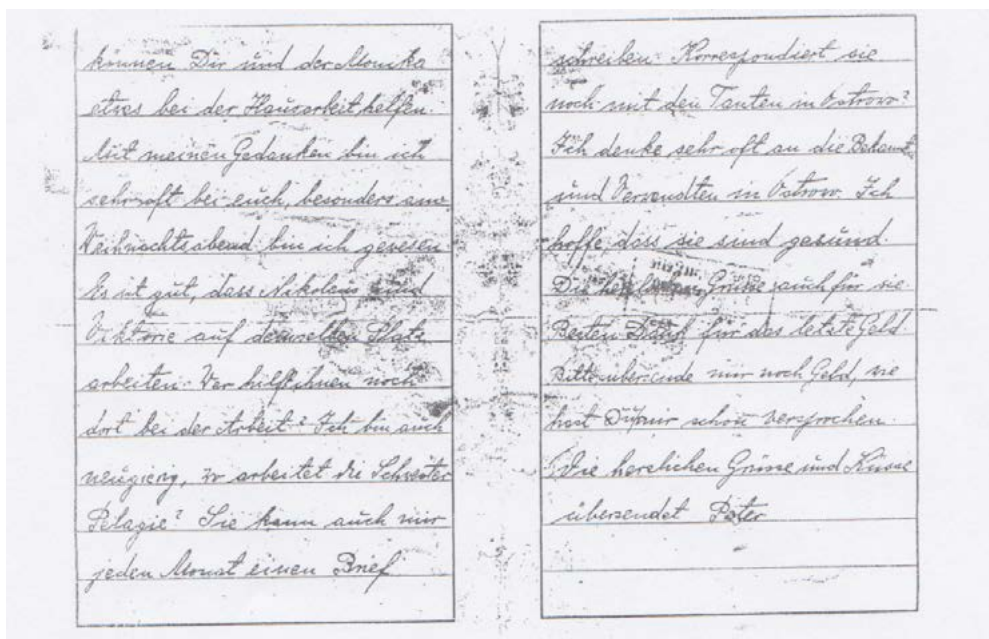 können Dir und der Monika
etwas bei der Hausarbeit helfen.
Mit meinen Gedanken bin ich
sehr oft bei euch, besonders am
Weihnachtsabend bin ich gewesen.
Es ist gut, dass Nikolaus und
Viktorie auf demselben Platz
arbeiten. Wer hilft ihnen noch
dort bei der Arbeit? Ich bin auch
neugierig, wo arbeitet die Schwester
Pelagie? Sie kann auch mir
jeden Monat einen Brief
schreiben. Korrespondiert sie
noch mit den Tanten in Ostrow?
Ich denke sehr oft an die Bekannt
und Verwndten in Ostrow. Ich
hoffe, dass sie sind gesund.
Die Grüsse auch für sie.
Besten Dank für das letzte Geld
Bitte übersende mir noch Geld, wie
hast Du mir schon versprochen.
Die herzlichen Grüsse und Küsse
übersendet Peter